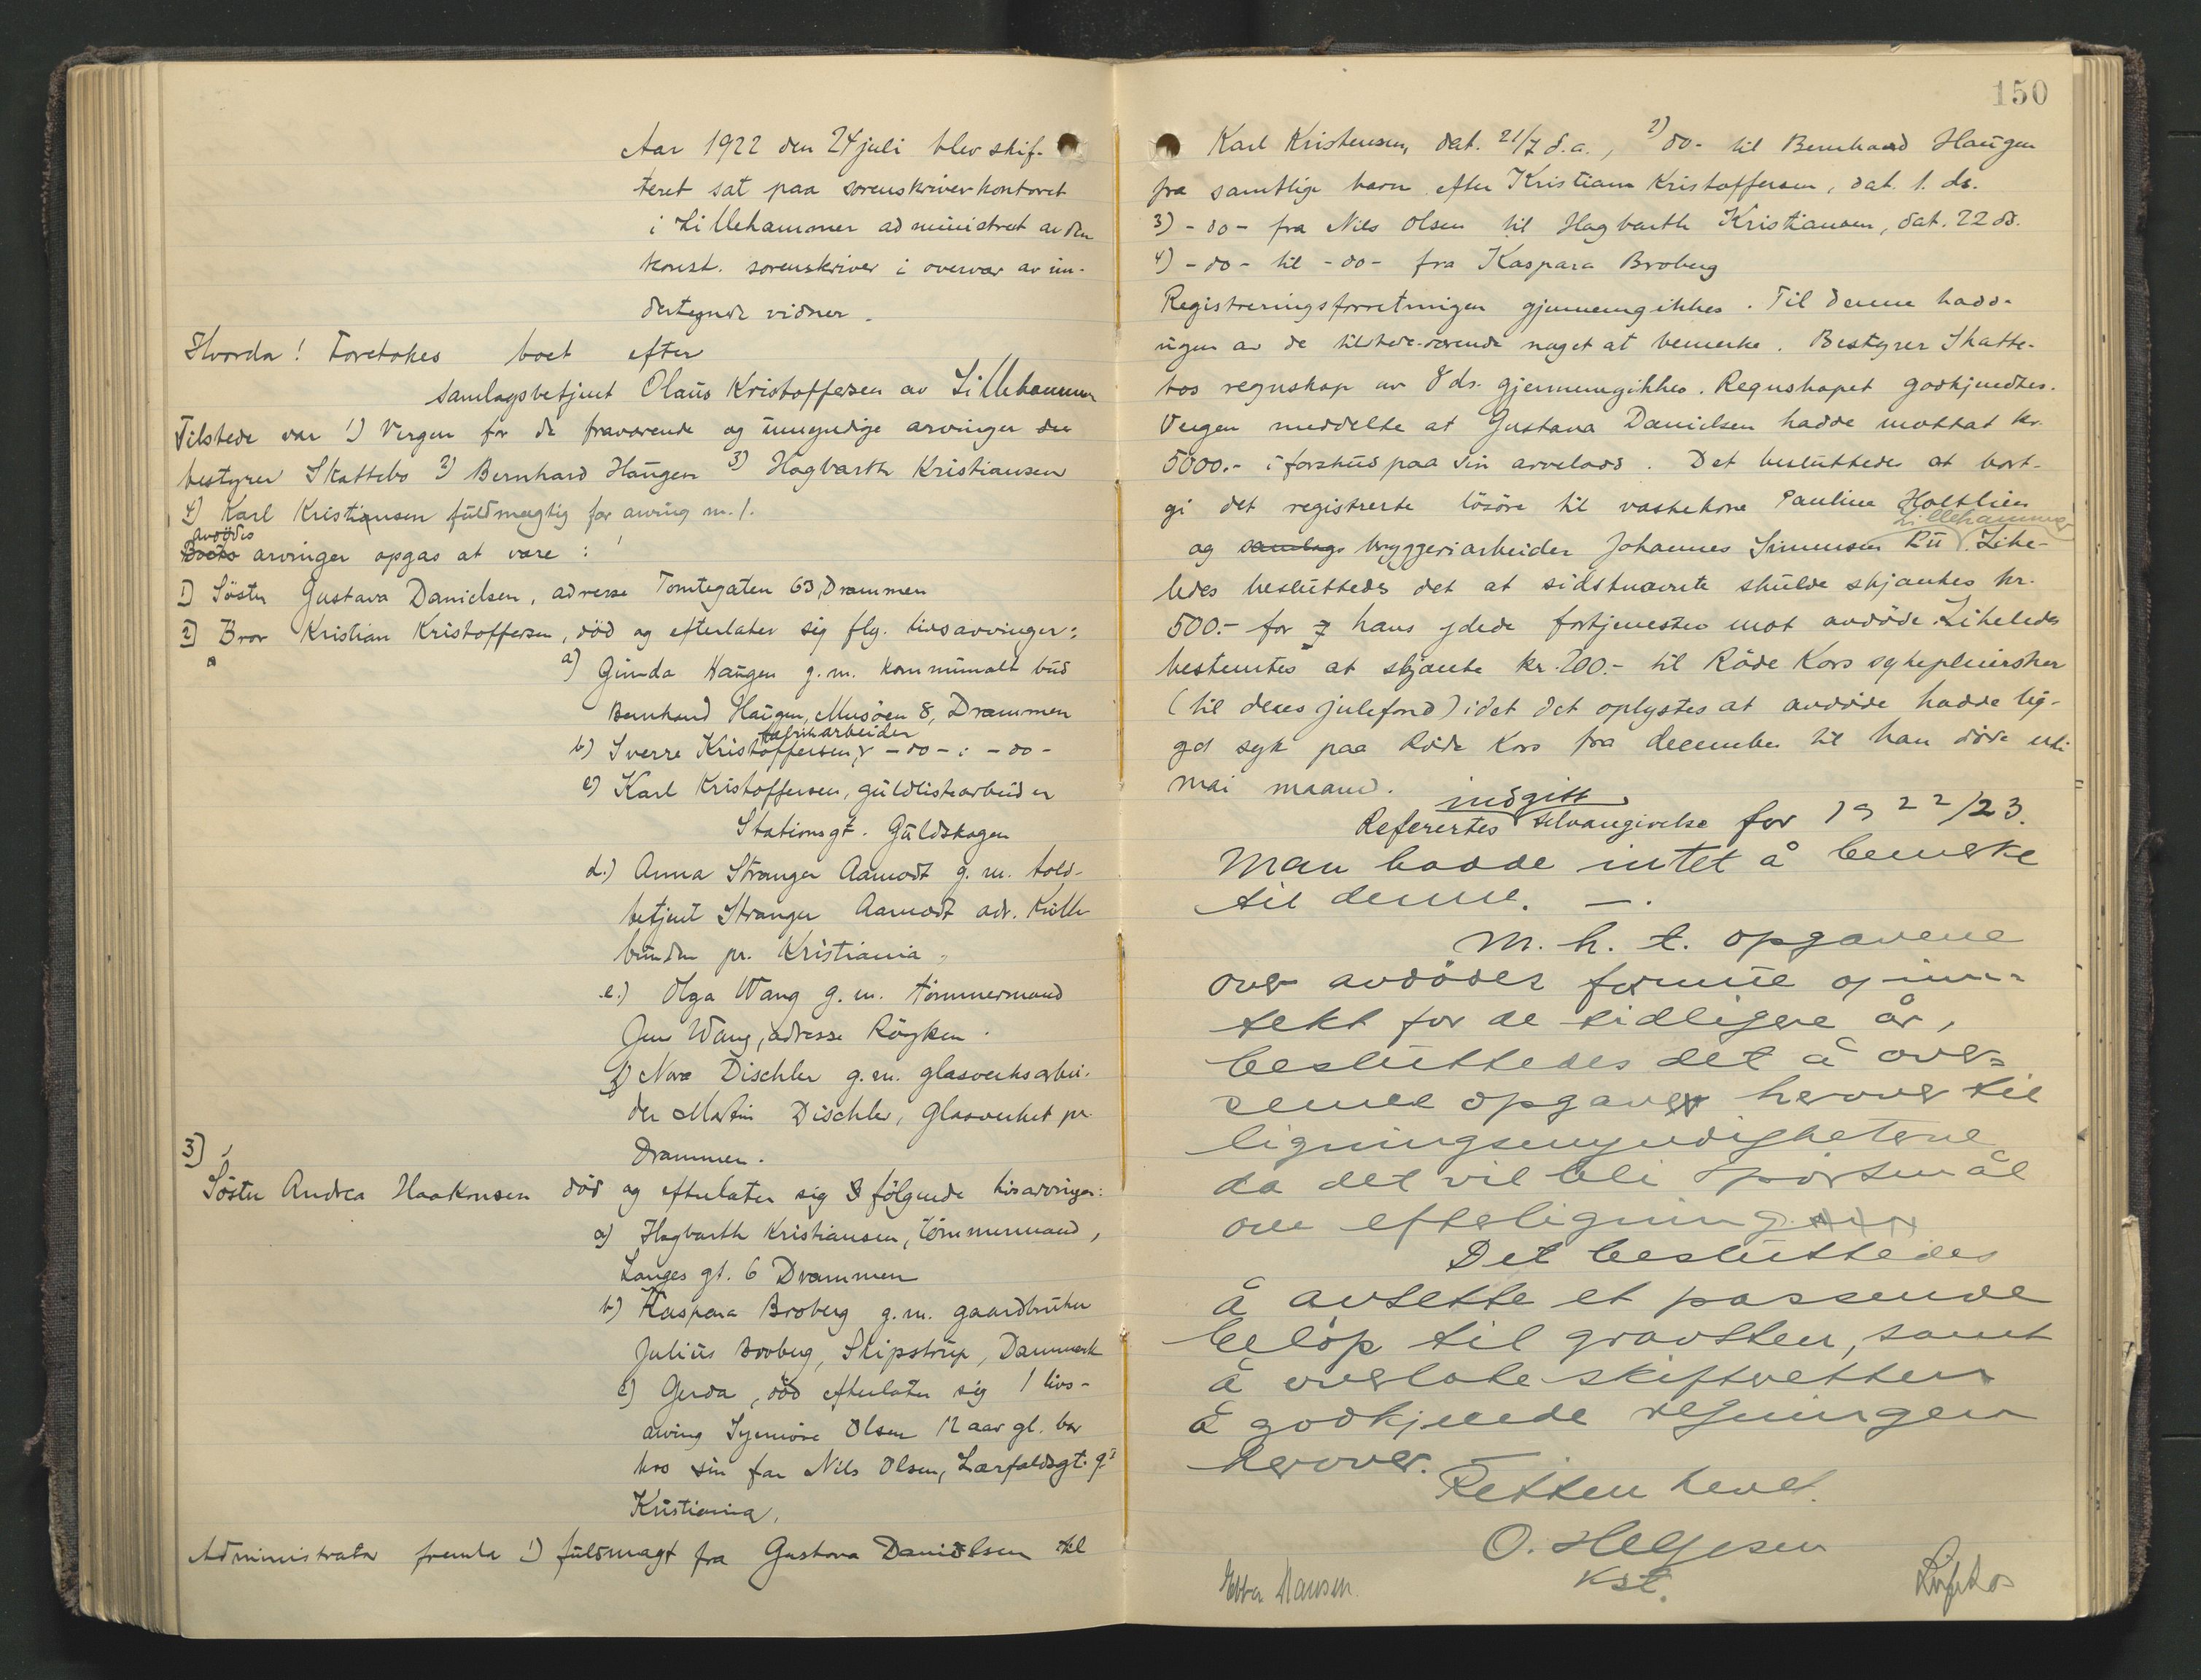 Aar 1922 den 24 juli blev skif-
teret sat paa sorenskriverkontoret
i Lillehammer administrert av den
konst. sorenskriver i overvær av un-
dertegnede vidner.
Hvorda! Foretokes boet efter
samlagsbetjent Olaus Kristoffersen av Lillehammer
Tilstede var 1) Vergen for de fraværende og umyndige arvinger
bestyrer Skattebo 2) Bernhard Haugen 3) Hagbarth Kristiansen
4) Karl Kristiansen fuldmægtig for arving nr. 1.
avdödes
Boets arvinger opgas at være:
1) Söster Gustava Danielsen, adresse Tomtegaten 63, Drammen
2) Bror Kristian Kristoffersen, död og efterlater sig flg. livsarvinger:
a) Gunda Haugen g.m. kommunalt bud
Bernhard Haugen, Musöen 8, Drammen
fabrikarbeider
b) Sverre Kristoffersen, -do-: -do-
c) Karl Kristoffersen, guldlistearbeider
Stationsgt. Guldskogen
d.) Anna Stranger Aamodt g.m. told-
betjent Stranger Aamodt adr. Kull-
bunden pr. Kristiania,
e.) Olga Wang g.m. tömmermand
Jens Wang, adresse Röyken.
f) Nora Dischler g.m. glasverksarbei-
der Martin Dischler, Glasverket pr.
Drammen.
3)
Söster Andrea Haakonsen död og efterlater sig 3 fölgende livsarvinger:
a) Hagbarth Kristiansen, tömmermand,
Langes gt. 6 Drammen
b) Kaspara Broberg g.m. gaardbruker
Julius Broberg, Skipstrup, Danmark
c) Gerda, död efterlater sig 1 livs-
arving Synnöve Olsen 12 aar gl. bor
hos sin far Nils Olsen, Lærfaldsgt. 9 I
Kristiania,
Administrator fremla 1) fuldmagt fra Gustava Danielsen til
150
Karl Kristensen, dat. 21/7 d.a., 2) do- til Bernhard Haugen
fra samtlige barn efter Kristian Kristoffersen, dat. 1. ds.
3) -do- fra Nils Olsen til Hagbarth Kristiansen, dat. 22 ds.
4) -do- til -do- fra Kaspara Broberg
Registreringsforretningen gjennemgikkes. Til denne hadde
ingen av de tilstede-værende noget at bemerke. Bestyrer Skatte-
bos regnskap av 8 ds. gjennemgikkes. Regnskapet godkjendtes.
Vergen meddelte at Gustava Danielsen hadde mottat kr.
5000.- i forskud paa sin arvelods. Det besluttedes at bort-
gi det registrerte lösöre til vaskekone Pauline Holtlien
Lillehammer
og samlags bryggeriarbeider Johannes Simensen Ru. Like-
ledes besluttedes det at sidstnævnte skulde skjænkes kr.
500.- for hans ydede fortjenester mot avdöde. Likeledes
bestemtes at skjænke kr. 200.- til Röde Kors sykepleiersker
(til deres julefond) idet det oplystes at avdöde hadde lig-
get syk paa Röde Kors fra december til han döde uti
mai maaned.
indgitt
Referertes selvangivelse for 1922/23.
Man hadde intet å bemerke
til denne. —.
M. h. t. opgavene
over avdödes formue og inn-
tekt for de tidligere år,
besluttedes det å over-
sende opgaver herover til
ligningsmyndighetene
da det vil bli spörsmål
om efterligning.
Det besluttedes
å avsette et passende
belöp til gravsten, samt
å overlate skifteretten
å godkjende regningen
herover. —
Retten hevet.
O. Helgesen
Kst.
Ebba Hansen.